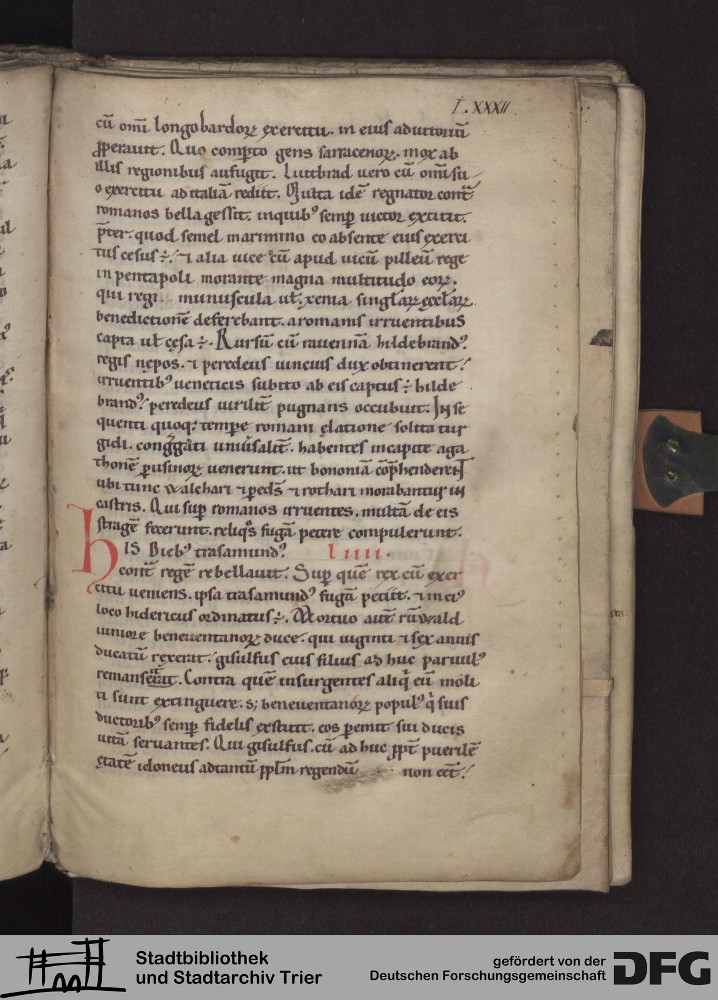 L.XXXII
cū om̄i longobardoꝝ exercitu. in eius adiutoriū
ꝓperauit. Quo comꝑto gens sarracenoꝝ. mox ab
illis regionibus aufugit. Liutbrad uero cū om̄i su
o exercitu ad italiā rediit. Multa idē regnator cont̄
romanos bella gessit. in quibꝰ semꝑ uictor extitit.
p̄ter. quod semel marimino eo absente eius exerci
tus cesus ÷. ⁊ alia uice cū apud uicū pilleū rege
in pentapoli morante magna multitudo eoꝝ.
qui regi munuscula uł. xenia singłaꝝ eccłaꝝ
benedictionē deferebant. a romanis irruentibus
capta uł cęsa ÷. Rursū cū rauennā hildebrandꝰ.
regis nępos. ⁊ peredeus uincius dux obtinerent.
irruentibꝰ ueneticis subito ab eis captus ÷ hilde
brandꝰ. peredeus uirilit̄ pugnans occubuit. In se
quenti quoqꝫ tempore romani elatione solita tur
gidi. congg̅ati uniūsalit̄. habentes in capite aga
thonē ꝑusinoꝝ uenerunt. ut bononiā cōp̄henderent
ubi tunc walehari ⁊ ꝑedꝰ ⁊ rothari morabantur in
castris. Qui suꝑ romanos irruentes. multā de eis
stragē fecerunt. reliq̊s fugā petere compulerunt.
HIS Diebꝰ trasamundꝰ. liiii.
cont̄ regē rebellauit. Suꝑ quē rex cū exer
citu ueniens. ipsa trasamundꝰ fugā petiit. ⁊ in eiꝰ
loco hidericus ordinatus ÷. Mortuo autē rūwald
iuniore beneuentanoꝝ duce. qui uiginti ⁊ sex annis
ducatū rexerat. gisulfus eius filius ad huc paruulꝰ
remanserat. Contra quē insurgentes aliq̇ eū moli
ti sunt extinguere. sꝫ beneuentanoꝝ populꝰ q̇ suis
ductoribꝰ semꝑ fidelis exstitit. eos ꝑemit sui ducis
uitā seruantes. Qui gisulfus. cū ad huc ꝓpt̄ puerilē
ętatē idoneus ad tantū ꝓpłm regendū non eēt.
Stadtbibliothek
und Stadtarchiv Trier
gefördert von der
Deutschen Forschungsgemeinschaft
DFG